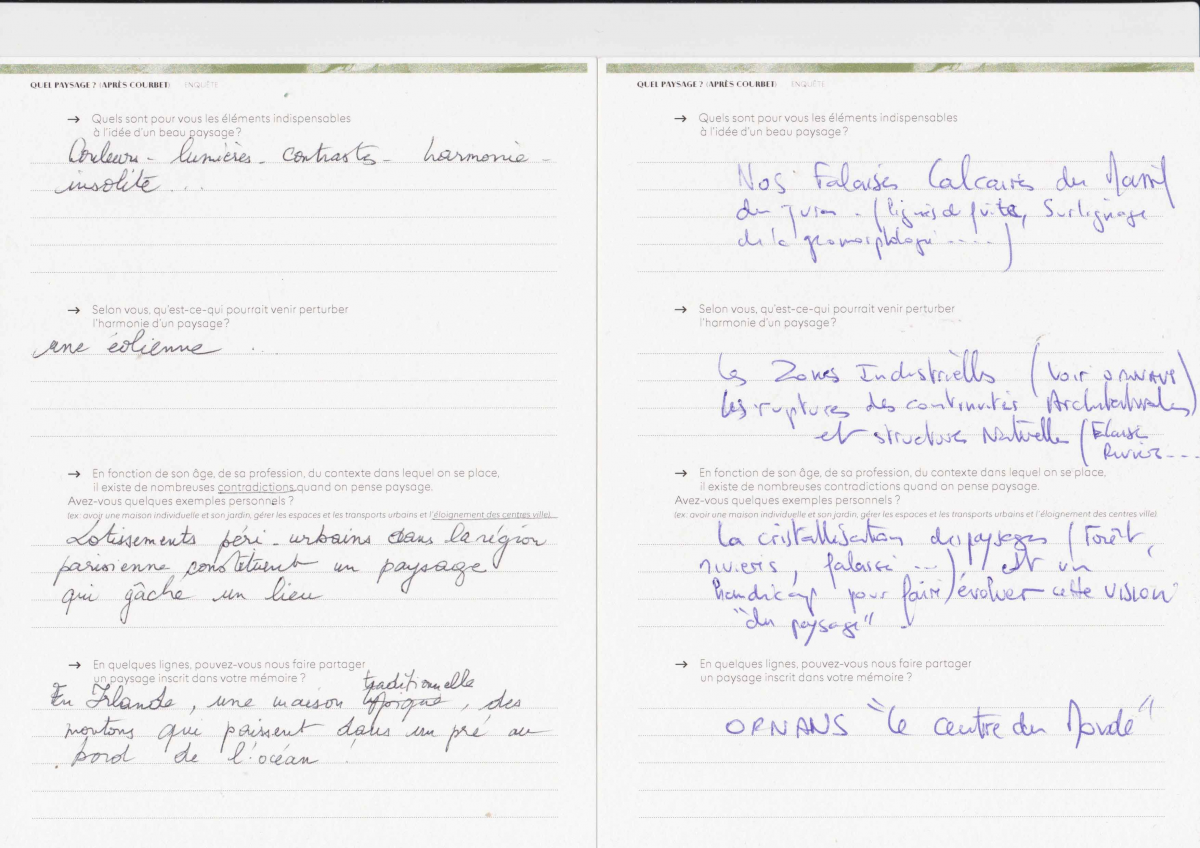 QUEL PAYSAGE ? (APRÈS COURBET) ENQUÊTE
→ Quels sont pour vous les éléments indispensables
à l'idée d'un beau paysage ?
Couleurs - lumières - contrastes - harmonie -
insolite ...
→ Selon vous, qu'est-ce-qui pourrait venir perturber
l'harmonie d'un paysage ?
une éolienne ...
→ En fonction de son âge, de sa profession, du contexte dans lequel on se place,
il existe de nombreuses contradictions quand on pense paysage.
Avez-vous quelques exemples personnels ?
(ex: avoir une maison individuelle et son jardin, gérer les espaces et les transports urbains et l'éloignement des centres ville).
Lotissements péri-urbains dans la région
parisienne constituent un paysage
qui gâche un lieu
→ En quelques lignes, pouvez-vous nous faire partager
un paysage inscrit dans votre mémoire ?
traditionnelle
En Irlande, une maison typique, des
moutons qui paissent dans un pré au
bord de l'océan.
QUEL PAYSAGE ? (APRÈS COURBET) ENQUÊTE
→ Quels sont pour vous les éléments indispensables
à l'idée d'un beau paysage ?
Nos Falaises Calcaires du Massif
du Jura - (lignes de fuite, Surlignage
de la geomorphologie ....)
→ Selon vous, qu'est-ce-qui pourrait venir perturber
l'harmonie d'un paysage ?
Les Zones Industrielles (voir ORNANS)
Les ruptures des continuités Architecturales
et structures Naturelles (Falaise
Rivière ...
→ En fonction de son âge, de sa profession, du contexte dans lequel on se place,
il existe de nombreuses contradictions quand on pense paysage.
Avez-vous quelques exemples personnels ?
(ex: avoir une maison individuelle et son jardin, gérer les espaces et les transports urbains et l'éloignement des centres ville).
La cristallisation des paysages (Forêt,
rivières, falaise ...) Est un
handicap pour faire évoluer cette VISION
"du paysage" -
→ En quelques lignes, pouvez-vous nous faire partager
un paysage inscrit dans votre mémoire ?
ORNANS "Le centre du Monde"